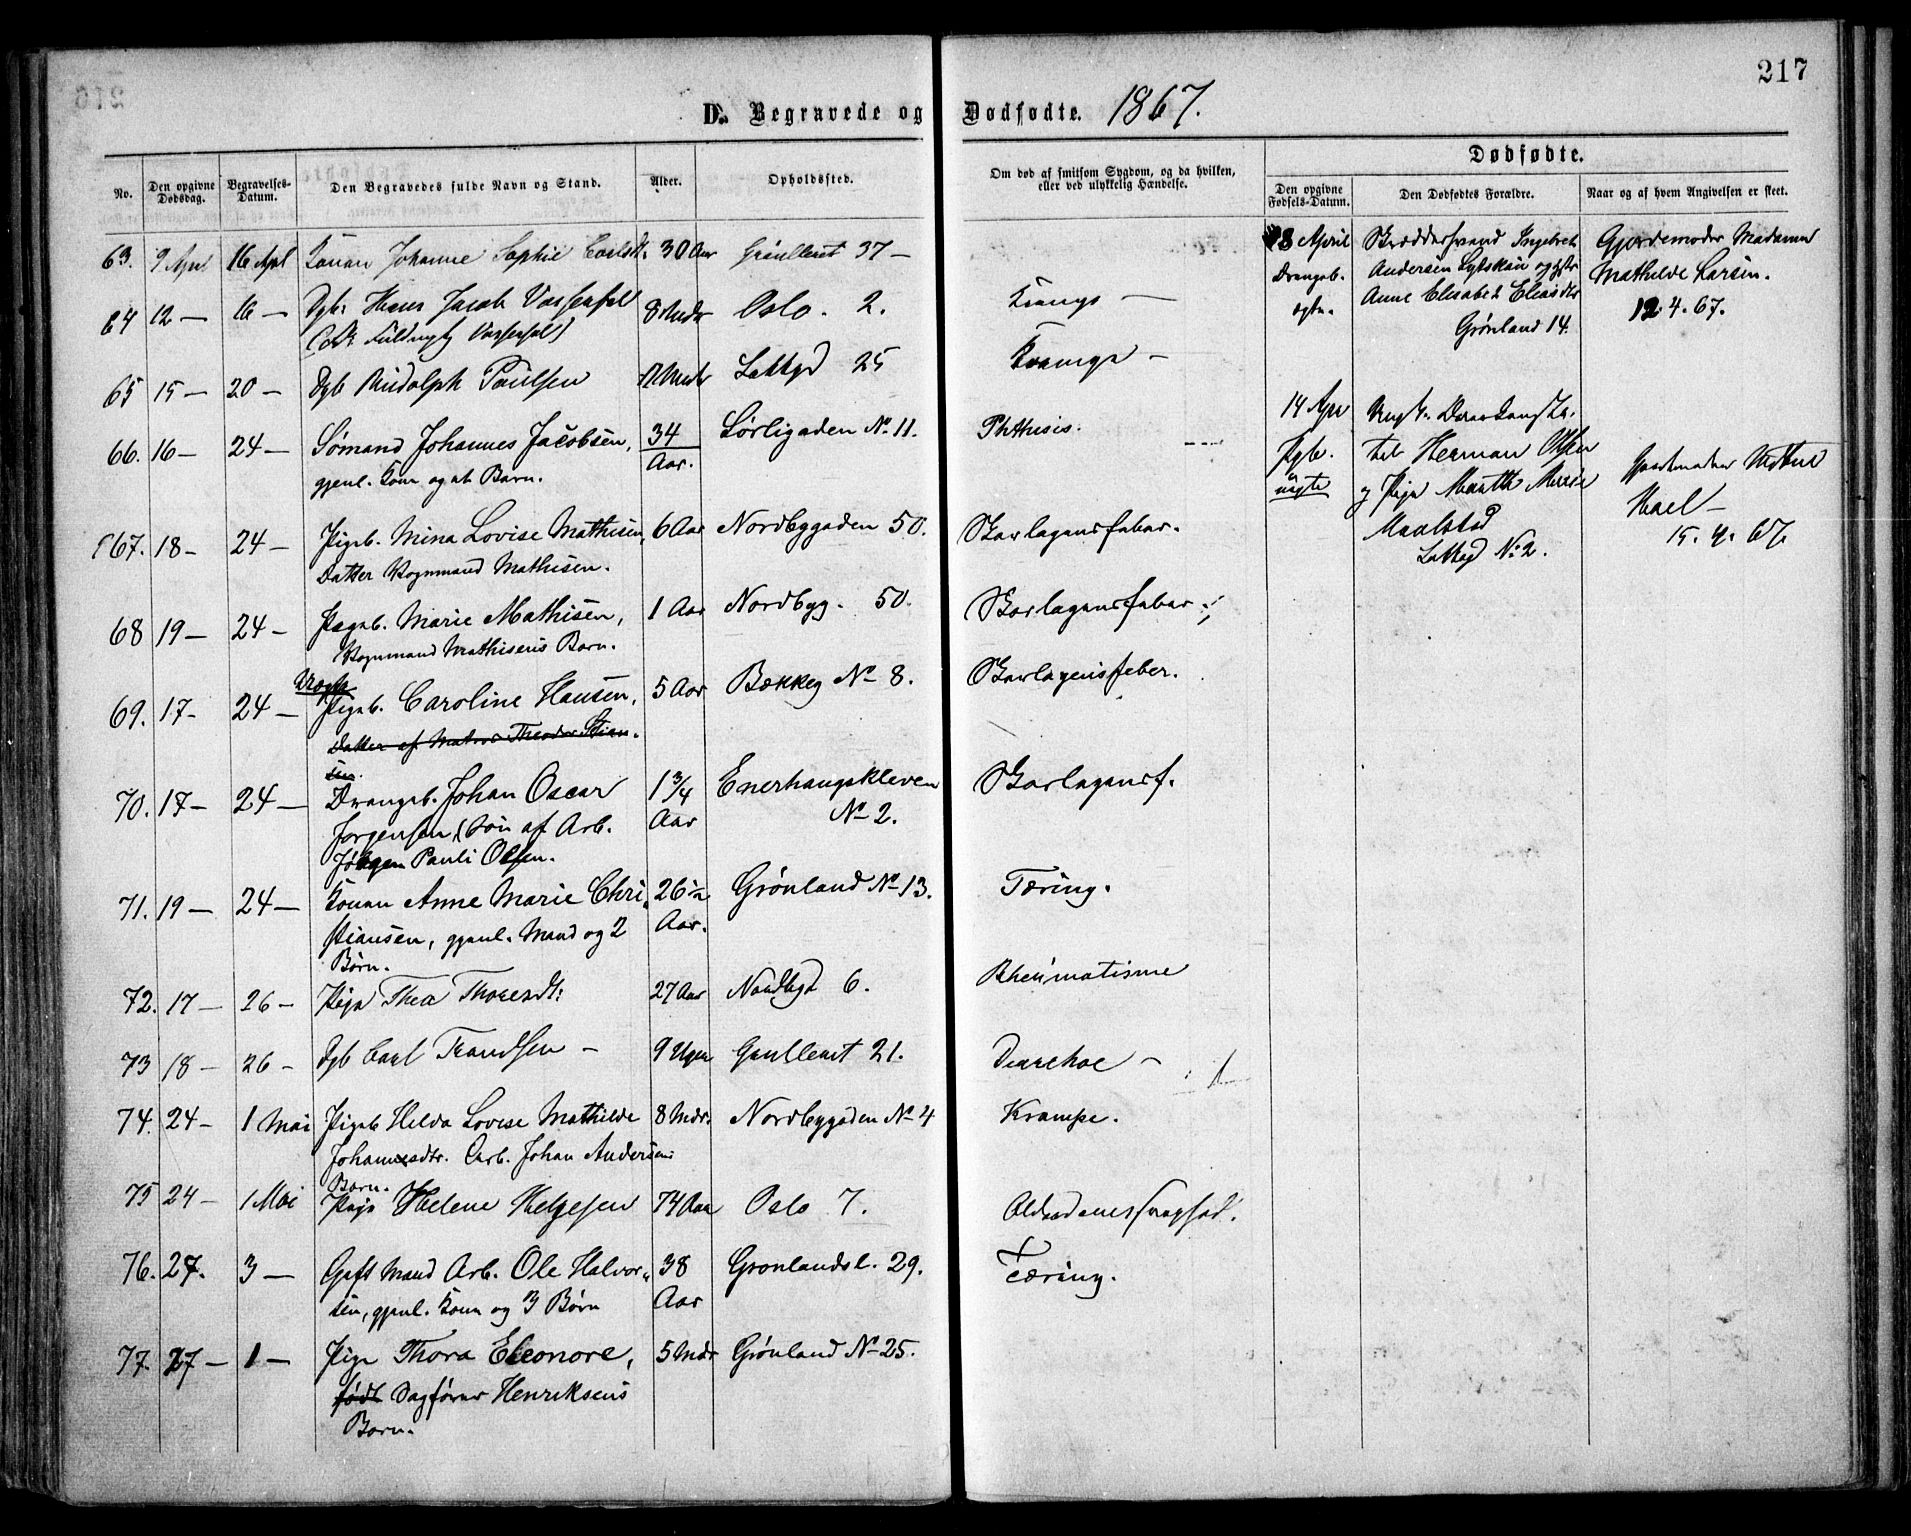 217
D. Begravede og Dødfødte. 1867.
No. Den opgivne Dødsdag. Begravelses-Datum. Den Begravedes fulde Navn og Stand. Alder. Opholdssted. Om død af smitsom Sygdom, og da hvilken, eller ved ulykkelig Hændelse.
Dødfødte.
Den opgivne Fødsels-Datum. Den Dødfødtes Forældre. Naar og af hvem Angivelsen er skeet.
63. 9 Apr 16 Apl Konen Johanne Sophie 30 Aar 37 —
64 12 — 16 — Dgb: Hans Jacob 8 Mdr Oslo. 2. Krampe —
65 15 — 20 — Dgb Rudolph Paulsen Lakkg 25 Krampe —
66. 16 — 24 — Sømand Johannes Jacobsen, 34 Aar. Sørligaden No 11. Phthisis.
gjenl. Kone og et Barn.
67. 18 — 24 — Pigeb. Mina Lovise Mathisen, 6 Aar Nordbygaden 50. Skarlagensfeber.
Datter Vognmand Mathisen.
68 19 — 24 — Pigeb. Marie Mathisen, 1 Aar Nordbyg. 50. Skarlagensfeber.
Vognmand Mathisens Barn.
69. 17 — 24 — Uægte Pigeb. Caroline Hansen, 5 Aar Bækkeg No 8. Skarlagensfeber.
Datter af Matros Theodor Stian-
sen.
70. 17 — 24 — Drengeb. Johan Oscar 1 3/4 Aar Enerhaugskleven No 2. Skarlagensf.
Jørgensen, Søn af Arb.
Jørgen Pauli Olsen.
71. 19 — 24 — Konen Anne Marie Chri- 26 1/2 Aar. Grønland No 13. Tæring.
stiansen, gjenl. Mand og 2
Børn.
72. 17 — 26 — Pige Thea Thoresdt: 27 Aar Nordbgd 6. Rheumatisme
73 18 — 26 — Dgb Carl — 9 Uger 21. Diarrhoe —
74. 24 — 1 Mai Pigeb Helda Lovise Mathilde 8 Mdr. Nordbygaden No 4 Krampe.
Johannesdtr. Arb. Johan Andersens
Barn.
75 24 — 1 Mai Pige Helene Helgesen 74 Aar Oslo 7. Alderdomssvaghed.
76. 27. 3 — Gift Mand Arb. Ole Halvor- 38 Aar Grønlandsl. 29. Tæring.
sen, gjenl. Kone og 3 Børn
77. 27 — 1 — Pige Thora Eleonore, 5 Mdr Grønland No 25.
født Sagfører Henriksens
Barn.
8 April
Drengeb.
ægte.
Ingebret
Andersen
Anne Elisabeth Eliasdtr
Grønland 14.
Gjordemoder Madame
Mathilde Larsen.
12. 4. 67.
14 Apr
Pgb.
uægte
Herman Olsen
og Pige Marthe Marie
Maalstad
Lakkeg No 2.
Gjordemoder
15. 4. 67.